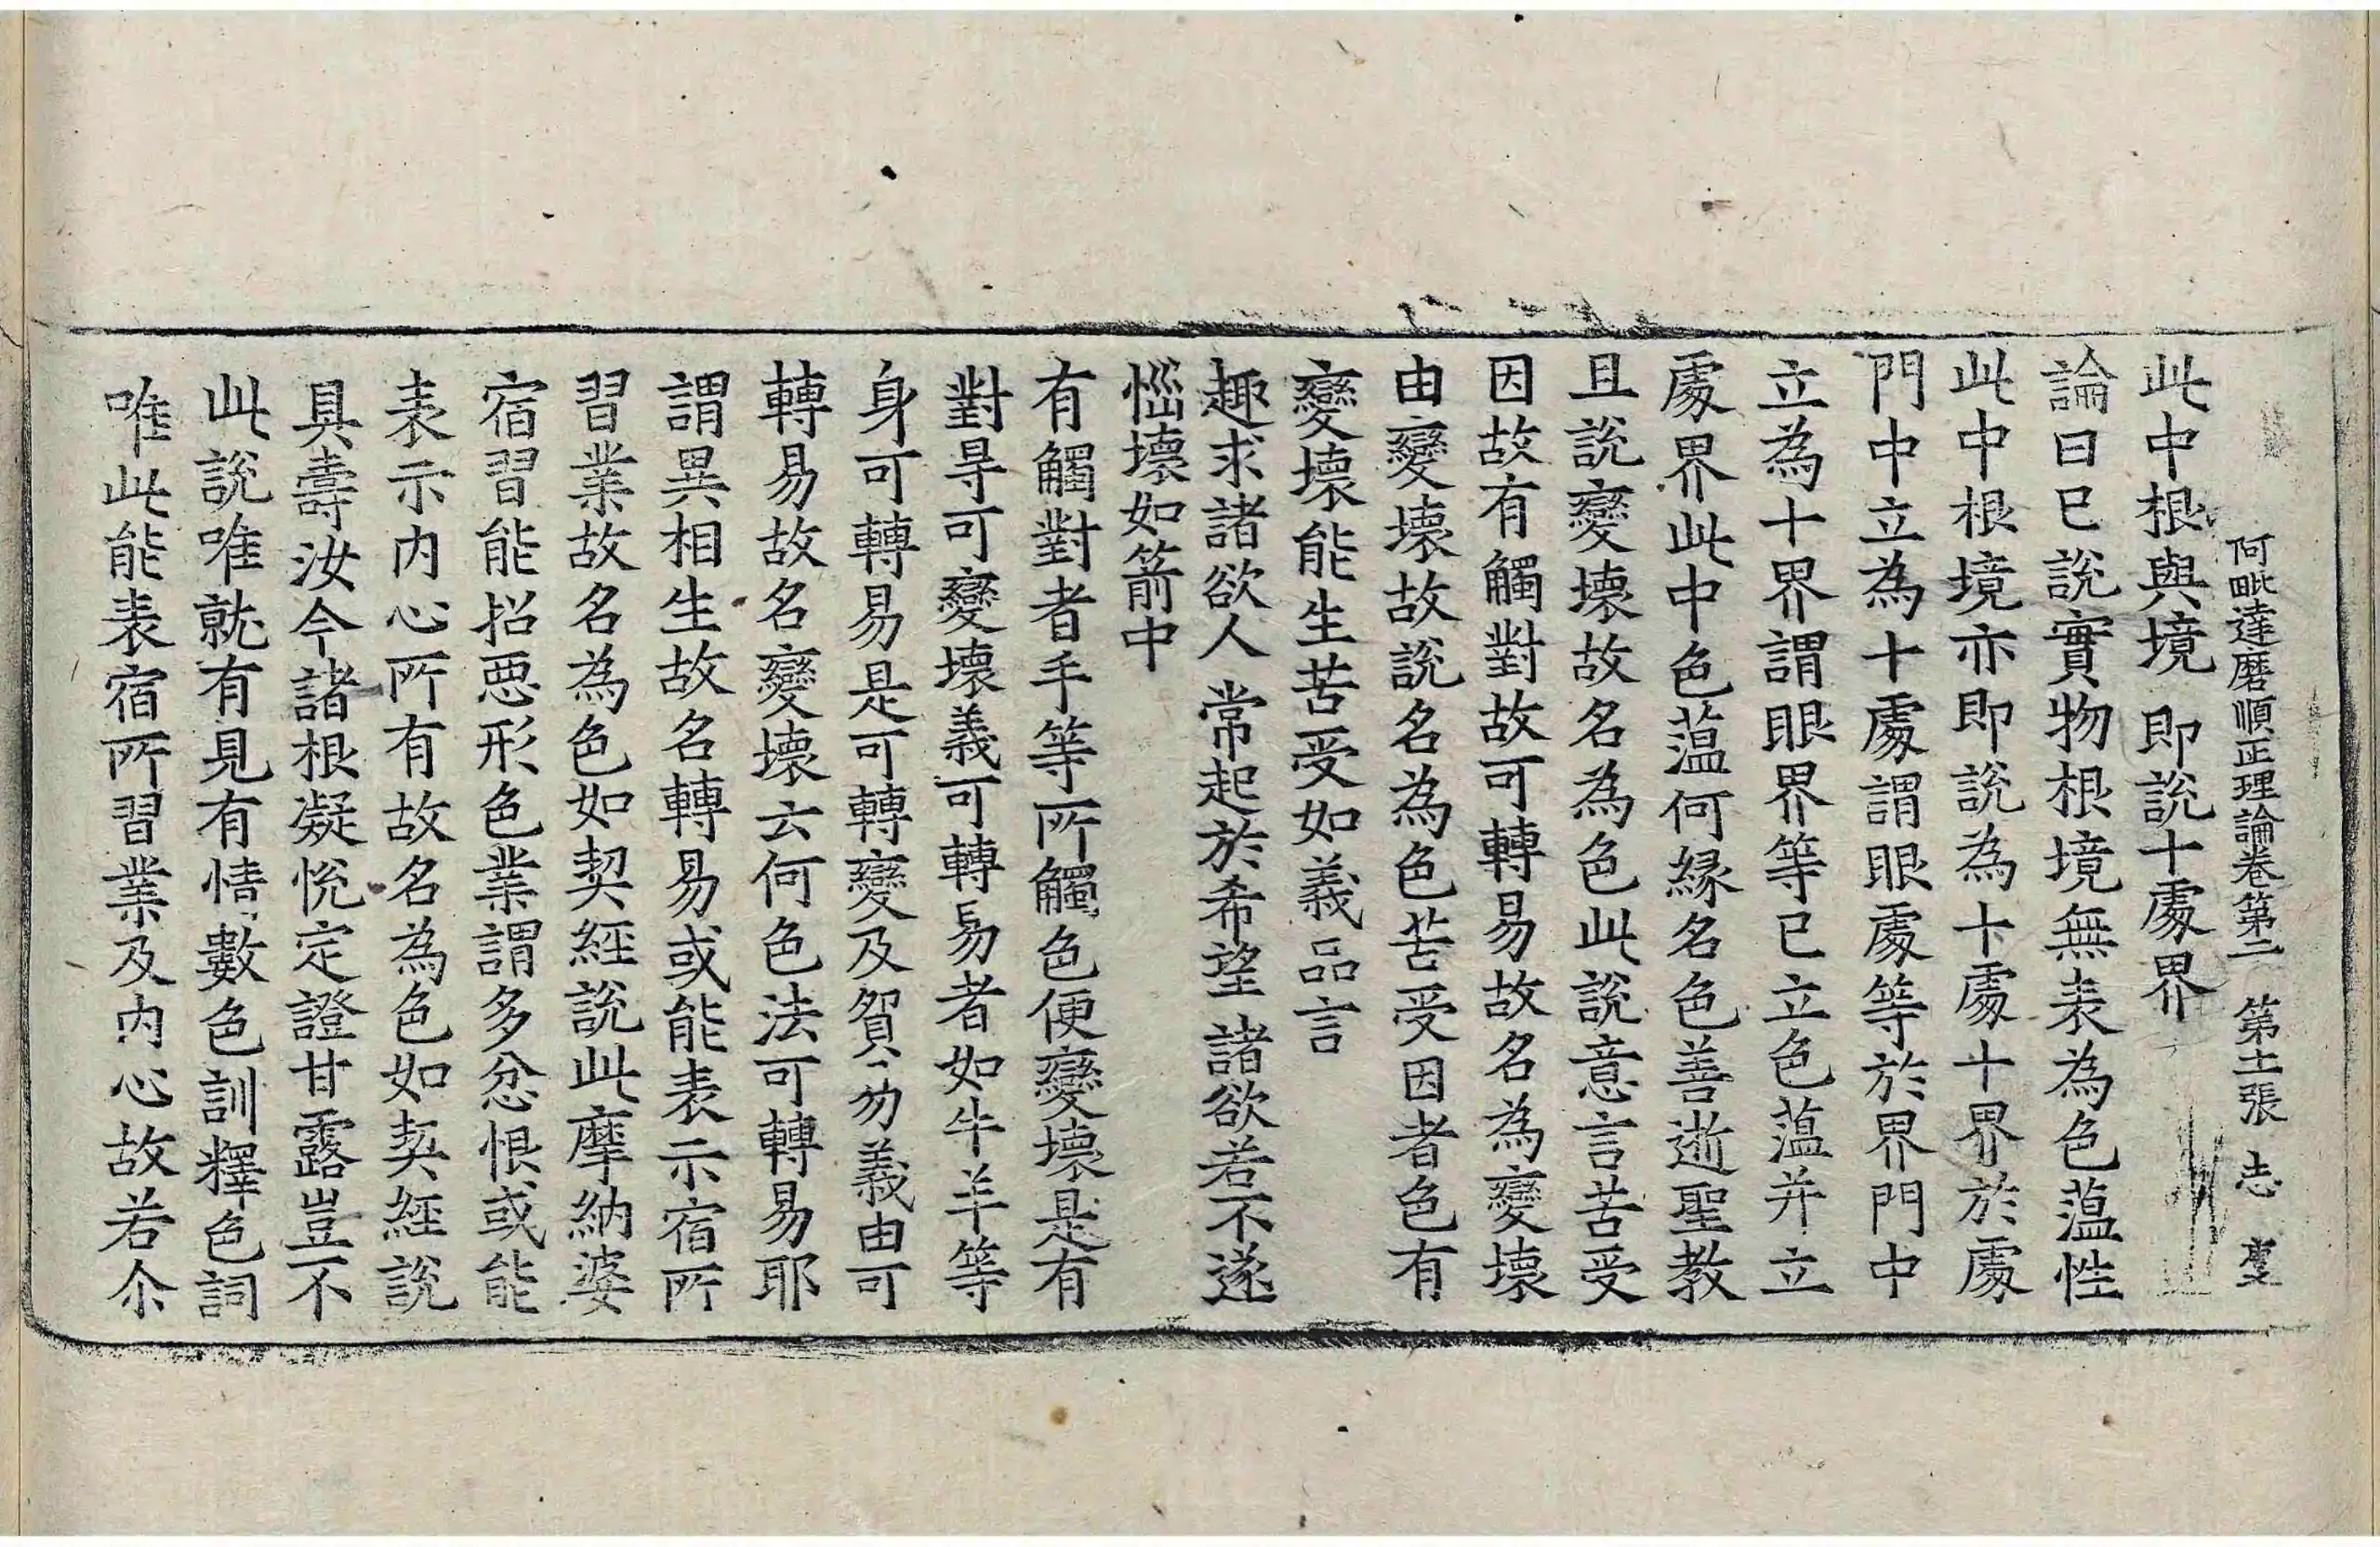 阿毗達磨順正理論卷第二 第十一張 志
此中根與境 即說十處界
論曰已說實物根境無表為色薀性
此中根境亦即說為十處十界於處
門中立為十處謂眼處等於界門中
立為十界謂眼界等已立色薀并立
處界此中色薀何緣名色善逝聖教
且說變壞故名為色此說意言苦受
因故有觸對故可轉易故名為變壞
由變壞故說名為色苦受因者色有
變壞能生苦受如義品言
趣求諸欲人 常起於希望 諸欲若不遂
惱壞如箭中
有觸對者手等所觸色便變壞是有
對㝵可變壞義可轉易者如牛羊等
身可轉易是可轉變及貿易義由可
轉易故名變壞云何色法可轉易耶
謂異相生故名轉易或能表示宿所
習業故名為色如契經說此摩納婆
宿習能招惡形色業謂多忿恨或能
表示內心所有故名為色如契經說
具壽汝今諸根凝悅定證甘露豈不
此說唯就有見有情數色訓釋色詞
唯此能表宿所習業及內心故若尒